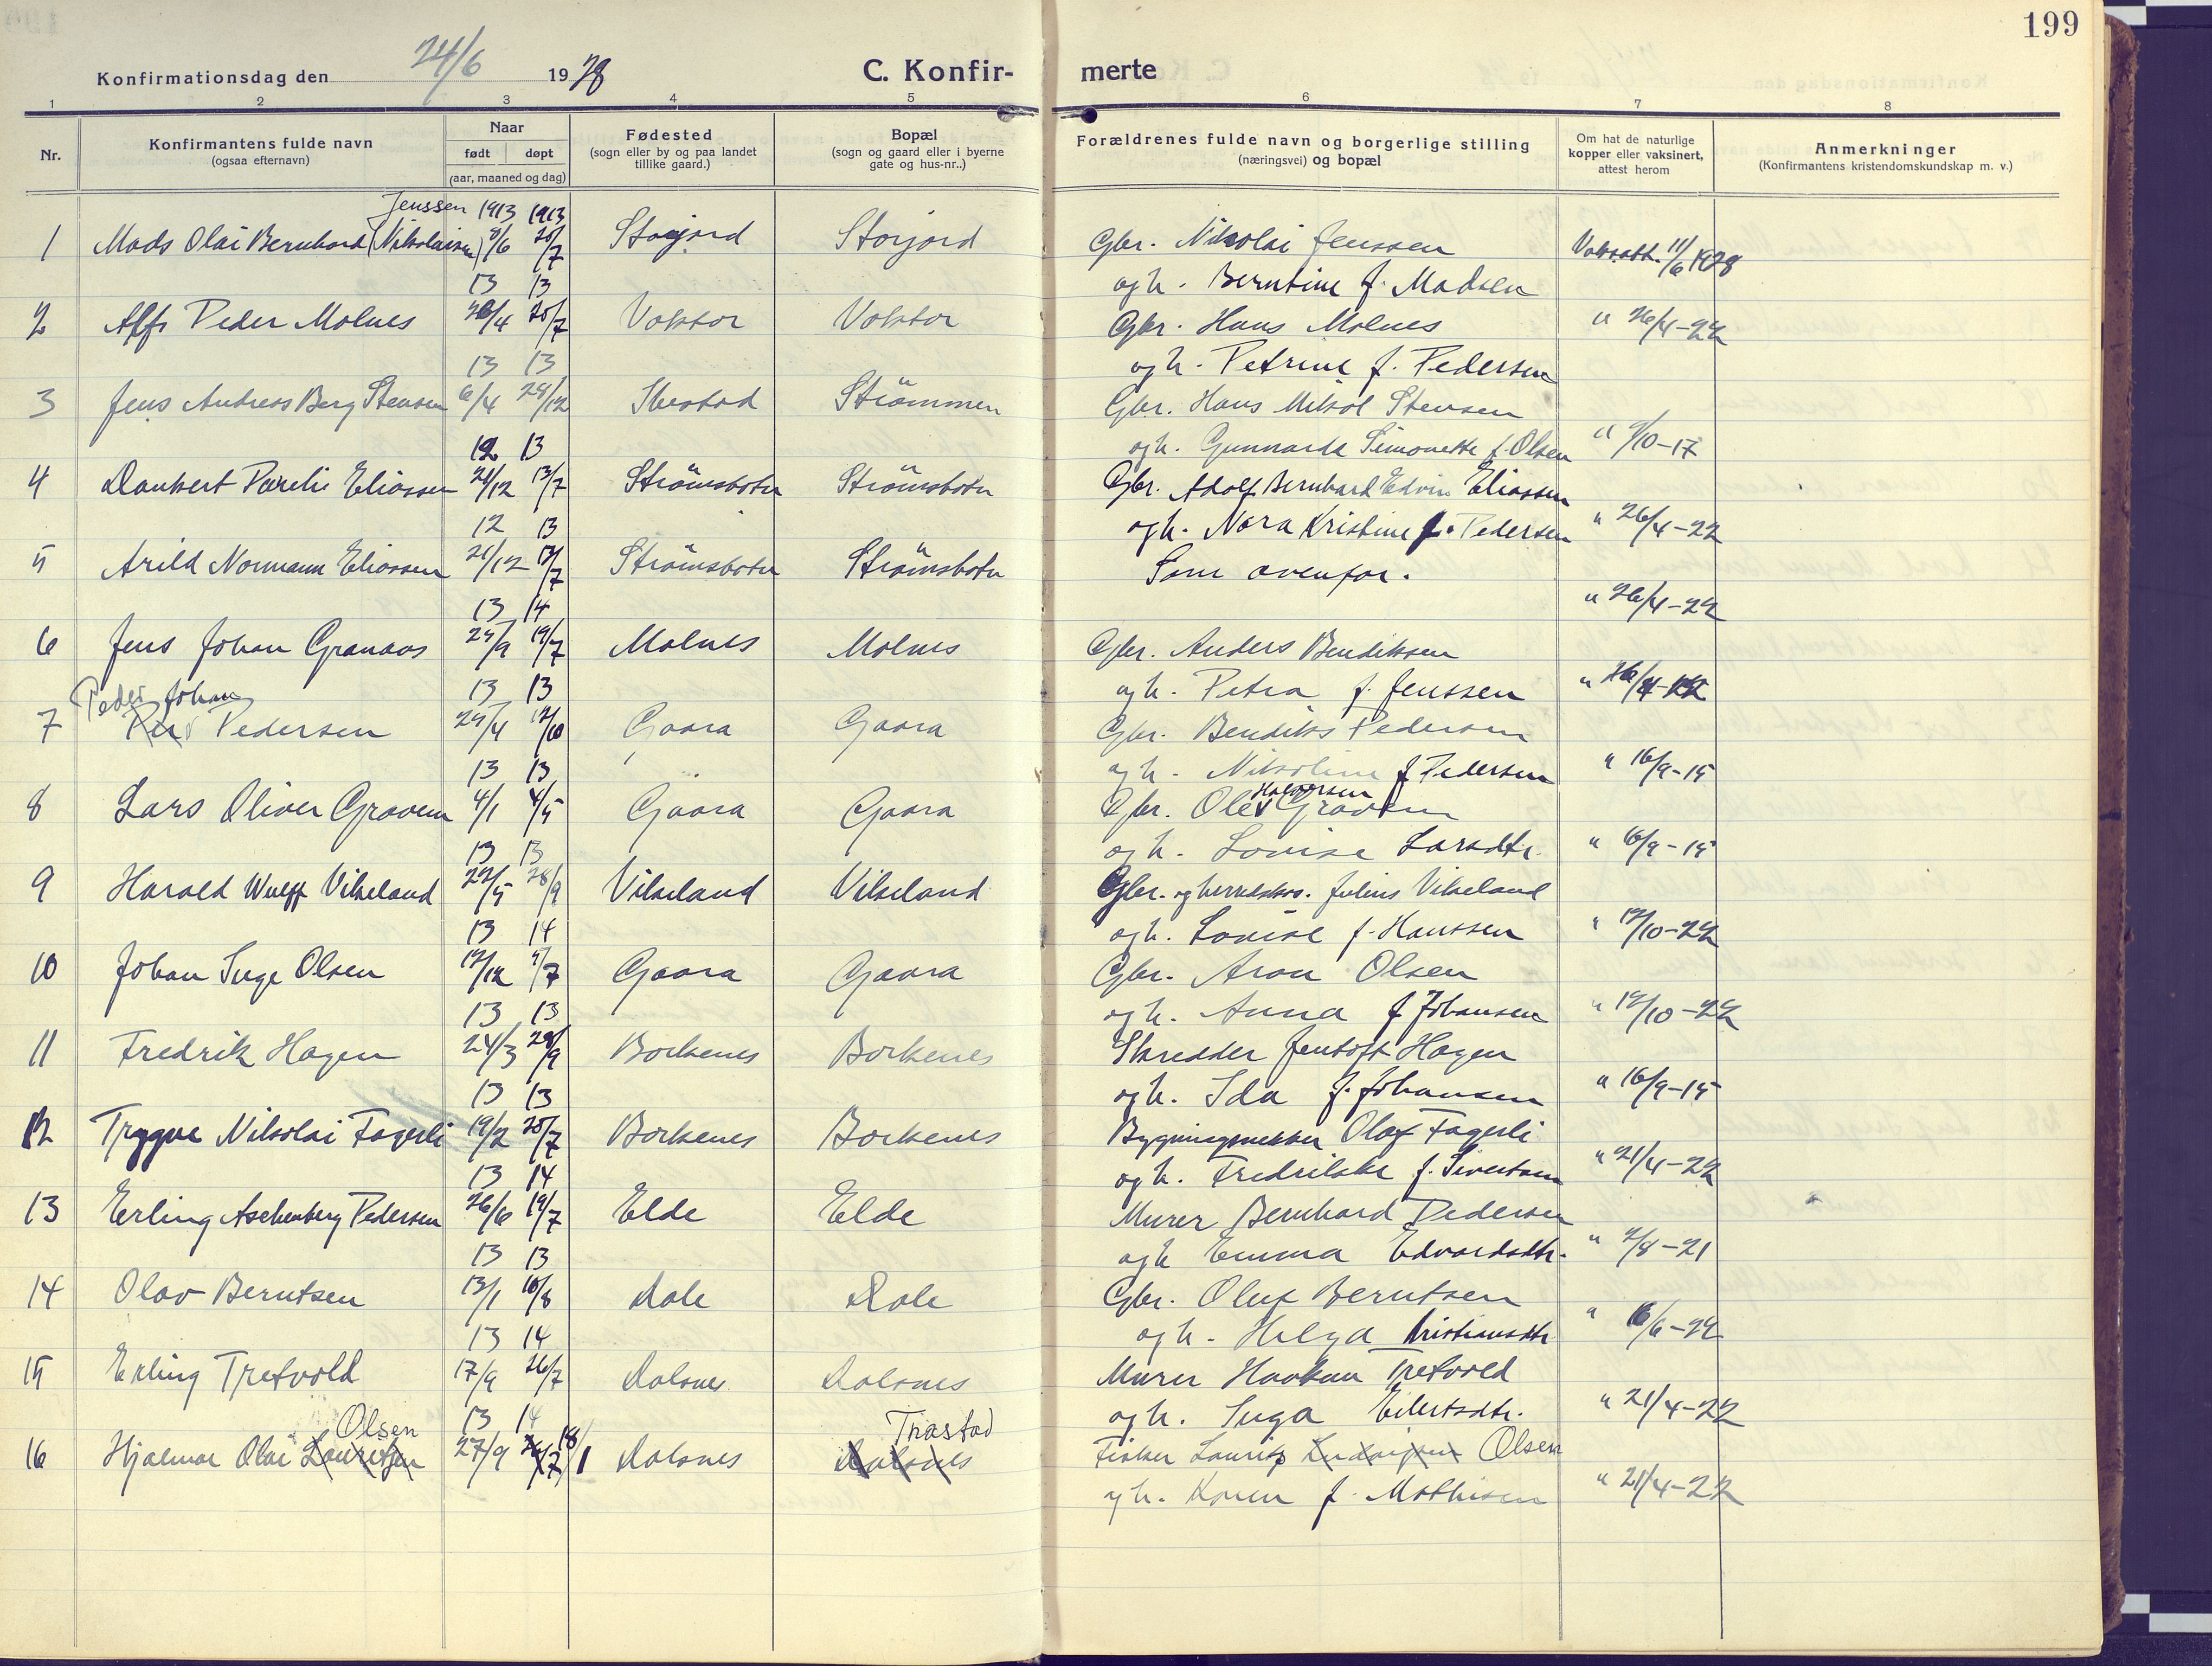 199
Konfirmationsdag den 24/6 1928
C. Konfir-
merte
1 2 3 4 5 6 7 8
Nr.
Konfirmantens fulde navn
(ogsaa efternavn)
Naar
født døpt
(aar, maaned og dag)
Fødested
(sogn eller by og paa landet
tillike gaard.)
Bopæl
(sogn og gaard eller i byerne
gate og hus-nr..)
Forældrenes fulde navn og borgerlige stilling
(næringsvei) og bopæl
Om hat de naturlige
kopper eller vaksinert,
attest herom
Anmerkninger
(Konfirmantens kristendomskundskap m. v.)
Jenssen 1913 1913
1 Mads Olai Bernhard (Nikolaisen) 8/6 20/7 Storjord Storjord Gbr. Nikolai Jenssen Vaksatt. 11/6 1928
13 13 og h. Berntine f. Madsen
2 Alfr Peder Molnes 26/4 20/7 Voktor Voktor Gbr. Hans Molnes " 26/4-22
13 13 og h. Petrine f. Pedersen
3 Jens Andreas Berg Stensen 6/4 29/12 Ibestad Strömmen Gbr. Hans Mikal Stensen
12 13 og h. Gunnarda Simonette f. Olsen " 9/10-17
4 Dankert Parelie Eliassen 21/12 13/7 Strömsbotn Strömsbotn Gbr. Adolf Bernhard Edvin Eliassen
12 13 og h. Nora Kristine f. Pedersen " 26/4-22
5 Arild Normann Eliassen 21/12 13/7 Strömsbotn Strömsbotn Som ovenfor.
13 14 " 26/4-22
6 Jens Johan Granaas 29/9 19/7 Molnes Molnes Gbr. Anders Bendiksen
13 13 og h. Petra f. Jenssen " 26/4-22
Peder Johan
7 Per Pedersen 29/4 12/10 Gaara Gaara Gbr. Bendiks Pedersen
13 13 og h. Nikoline f. Pedersen " 16/9-15
Halvorsen
8 Lars Oliver Graven 4/1 4/5 Gaara Gaara Gbr. Ole Graven
13 13 og h. Lovise Larsdtr. " 16/9-15
9 Harald Wulff Vikeland 22/5 28/9 Vikeland Vikeland Gbr. og herredskas. Julius Vikeland
13 14 og h. Lovise f. Hanssen " 12/10-22
10 Johan Inge Olsen 12/12 5/7 Gaara Gaara Gbr. Aron Olsen
13 13 og h. Anna f. Johansen " 12/10-22
11 Fredrik Hagen 24/3 28/9 Borkenes Borkenes Skredder Jentoft Hagen
13 13 og h. Ida f. Johansen " 16/9-15
12 Trygve Nikolai Fagerli 19/2 20/7 Borkenes Borkenes Bygningsnekker Olaf Fagerli
13 14 og h. Fredrikke f. Sivertsen " 21/4-22
13 Erling Aschenberg Pedersen 26/6 19/7 Elde Elde Murer Bernhard Pedersen
13 13 og h Emma Edvardsdtr. " 2/8-21
14 Olav Berntsen 13/1 10/8 Dale Dale Gbr. Oluf Berntsen
13 14 og h. Helga Kristiansdtr " 16/6-22
15 Erling Tretvold 17/9 26/7 Dalsnes Dalsnes Murer Haakon Tretvold
13 14 og h. Inga Eilertsdtr. " 21/4-22
Olsen Trastad
16 Hjalmar Olai Lauritsen 27/9 26/7 18/1 Dalsnes Dalsnes Fisker Laurits Ludvigsen Olsen
og h. Karen f. Mathisen " 21/4-22